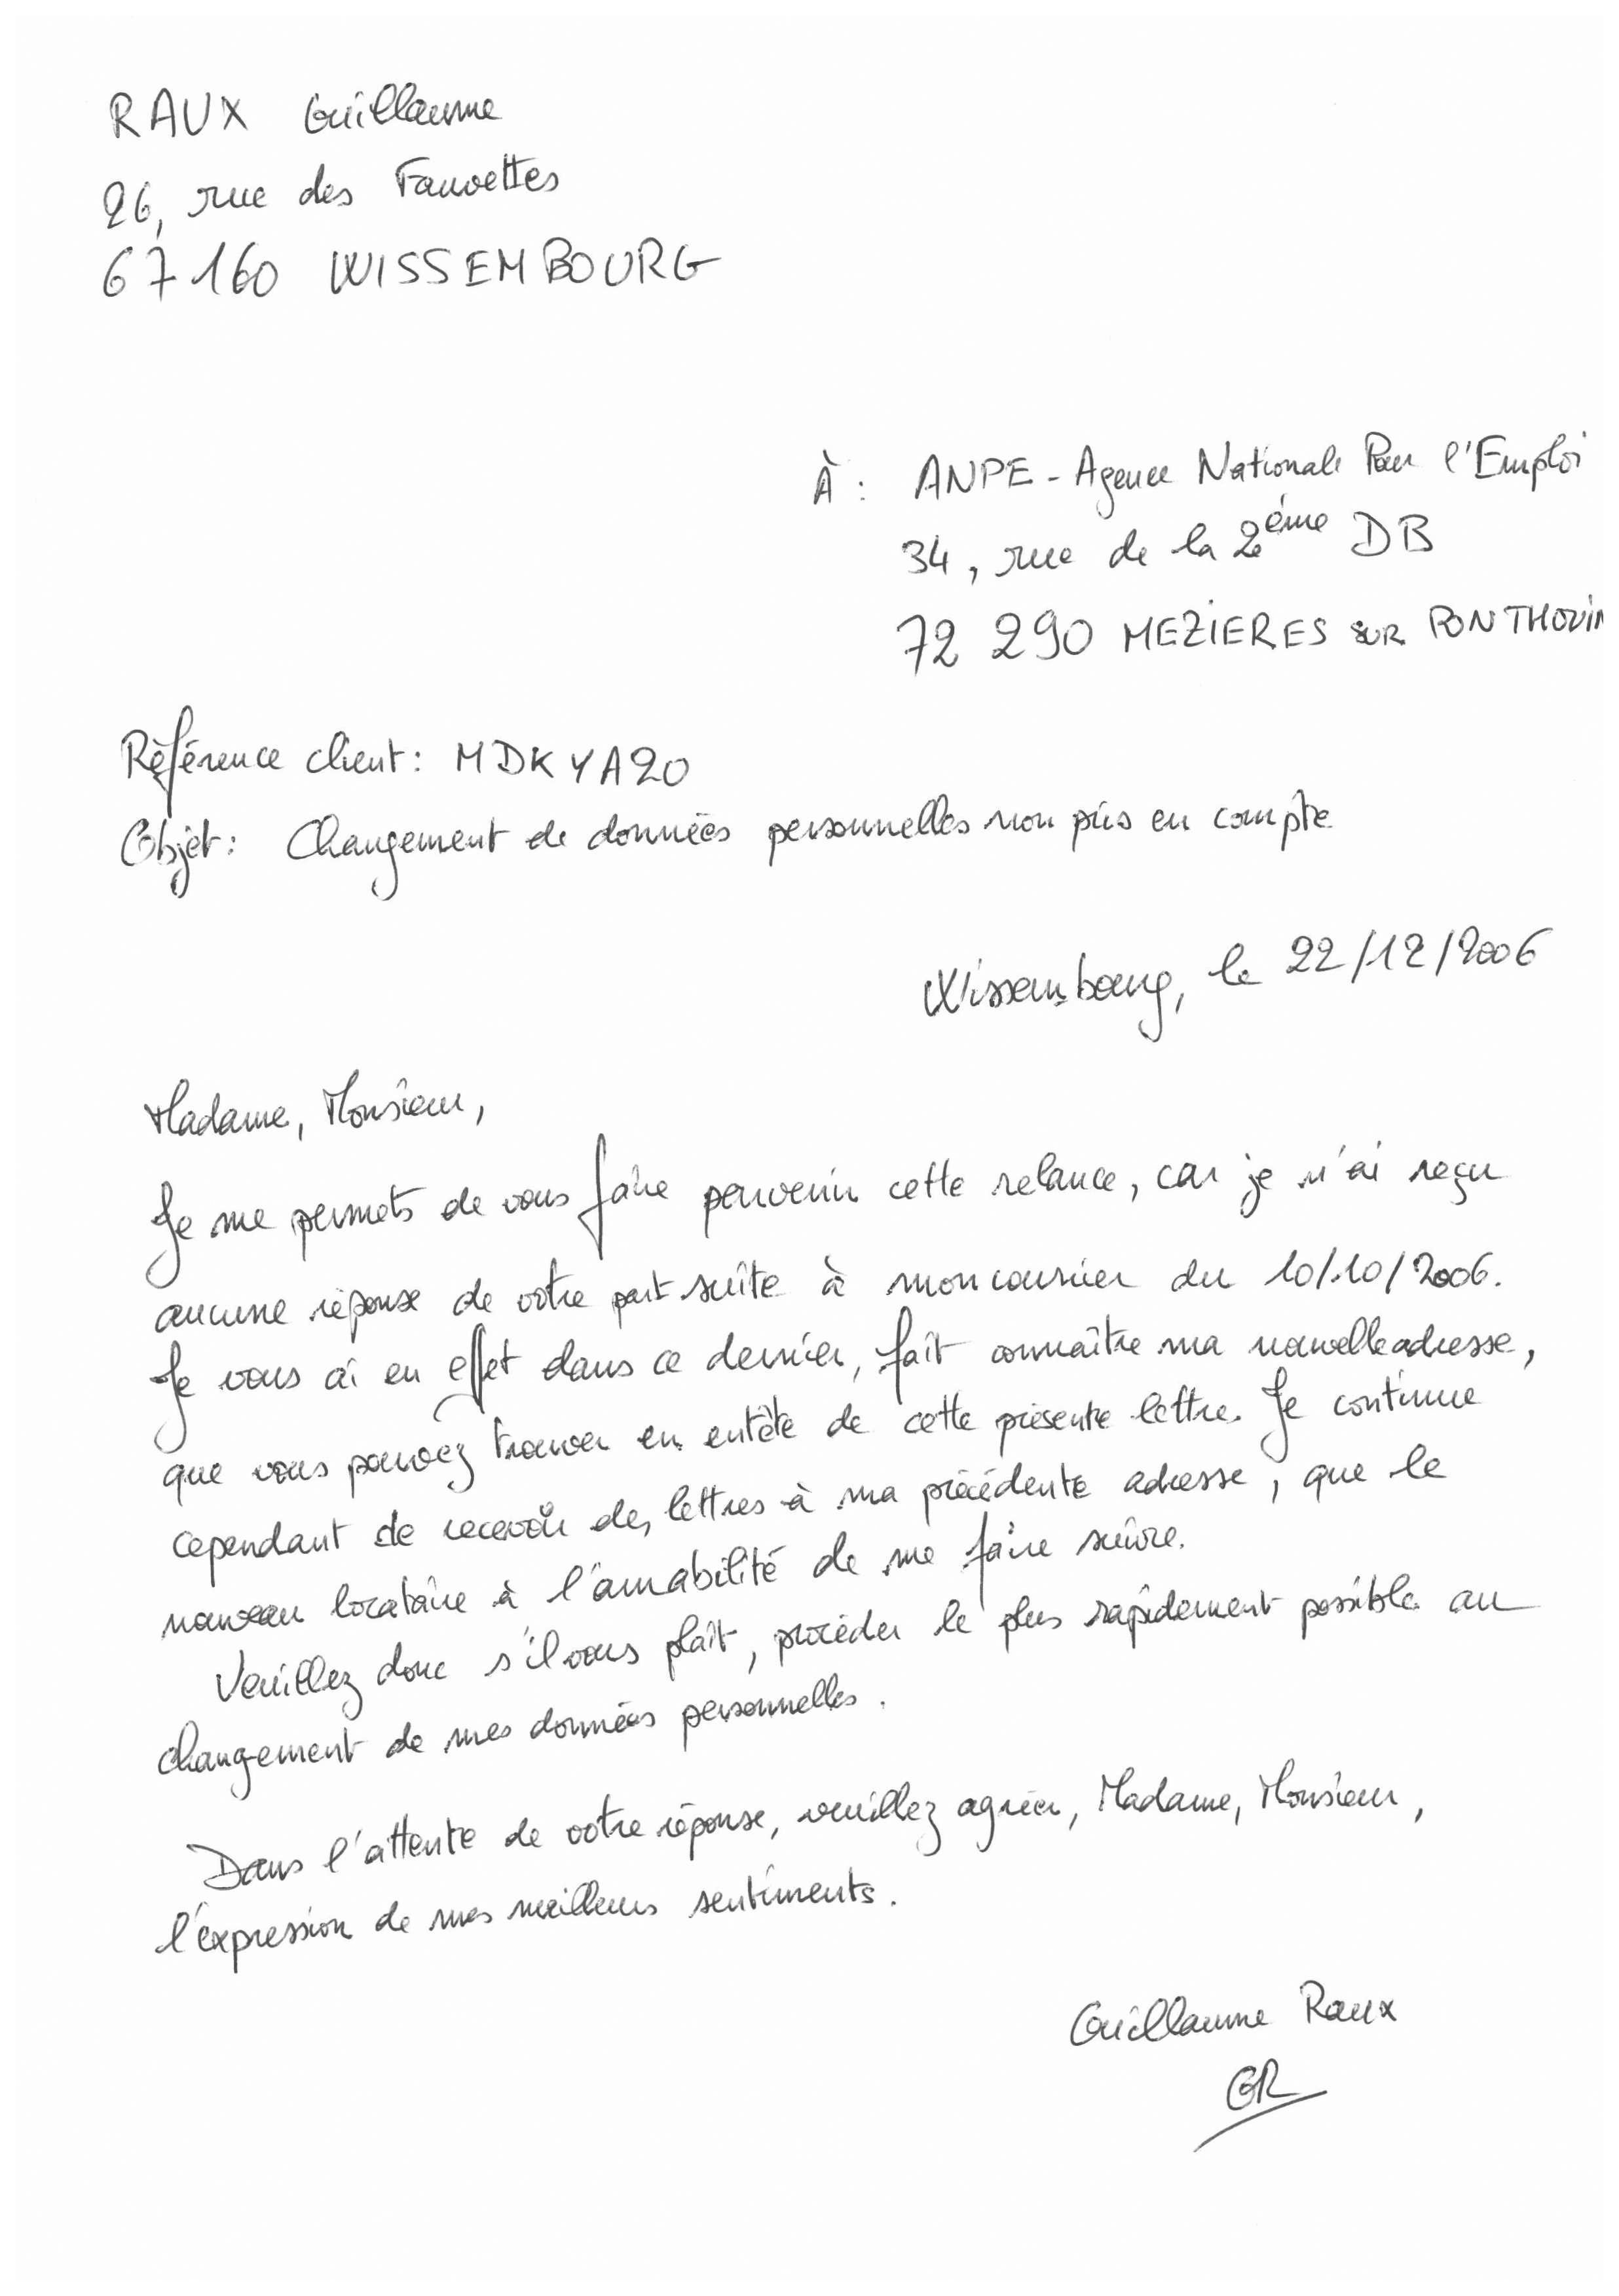 RAUX Guillaume
26, rue des Fauvettes
67160 WISSEMBOURG
À : ANPE - Agence Nationale Pour l'Emploi
34, rue de la 2ème DB
72 290 MEZIERES SUR PONTHOUIN
Référence client : MDKYA20
Objet : Changement de données personnelles non pris en compte
Wissembourg, le 22/12/2006
Madame, Monsieur,
Je me permets de vous faire parvenir cette relance, car je n'ai reçu
aucune réponse de votre part suite à mon courrier du 10/10/2006.
Je vous ai en effet dans ce dernier, fait connaître ma nouvelle adresse,
que vous pouvez trouver en entête de cette présente lettre. Je continue
cependant de recevoir des lettres à ma précédente adresse, que le
nouveau locataire à l'amabilité de me faire suivre.
Veuillez donc s'il vous plaît, procéder le plus rapidement possible au
changement de mes données personnelles.
Dans l'attente de votre réponse, veuillez agréer, Madame, Monsieur,
l'expression de mes meilleurs sentiments.
Guillaume Raux
GR